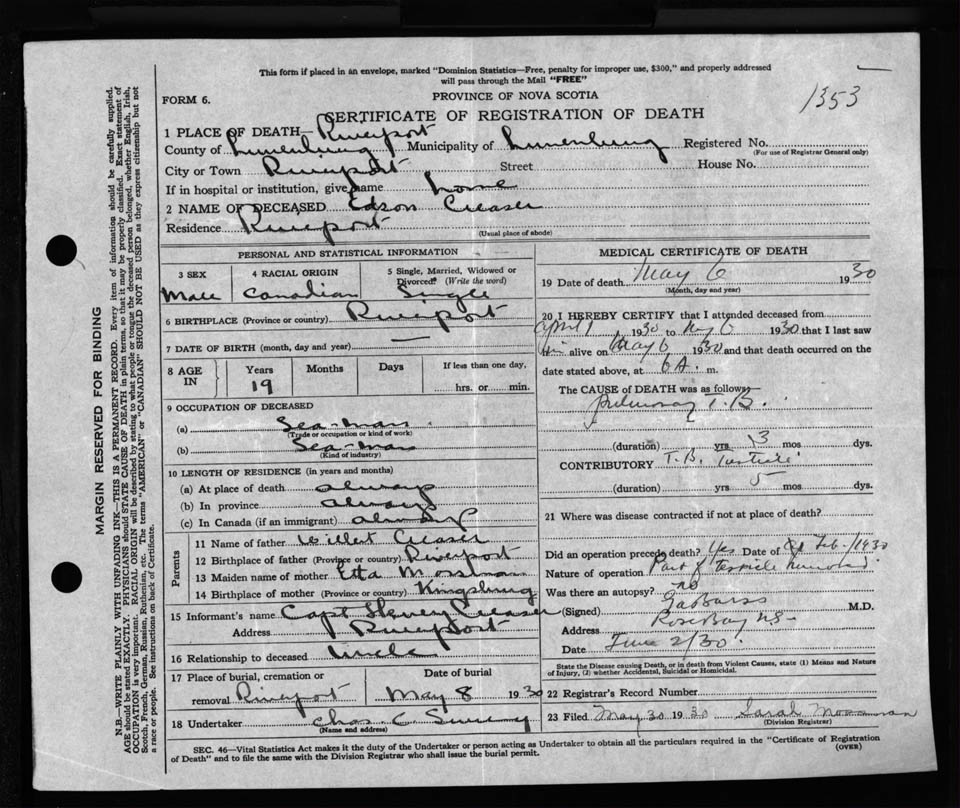 This form if placed in an envelope, marked "Dominion Statistics—Free, penalty for improper use, $300," and properly addressed
will pass through the Mail "FREE"
1353
FORM 6.
PROVINCE OF NOVA SCOTIA
CERTIFICATE OF REGISTRATION OF DEATH
1 PLACE OF DEATH— Riverport
County of Lunenburg Municipality of Lunenburg Registered No.
(For use of Registrar General only)
City or Town Riverport Street House No.
If in hospital or institution, give name home
2 NAME OF DECEASED Edson Creaser
Residence Riverport
(Usual place of abode)
PERSONAL AND STATISTICAL INFORMATION
3 SEX 4 RACIAL ORIGIN 5 Single, Married, Widowed or
Divorced? (Write the word)
Male Canadian Single
6 BIRTHPLACE (Province or country) Riverport
7 DATE OF BIRTH (month, day and year) —
8 AGE IN Years Months Days If less than one day,
19 hrs. or min.
9 OCCUPATION OF DECEASED
(a) Sea-man
(Trade or occupation or kind of work)
(b) Sea-man
(Kind of industry)
10 LENGTH OF RESIDENCE (in years and months)
(a) At place of death always
(b) In province always
(c) In Canada (if an immigrant) always
Parents
11 Name of father Creaser
12 Birthplace of father (Province or country) Riverport
13 Maiden name of mother Etta Mossman
14 Birthplace of mother (Province or country) Kingsburg
15 Informant's name Capt Henry Creaser
Address Riverport
16 Relationship to deceased Uncle
17 Place of burial, cremation or Date of burial
removal Riverport May 8 1930
18 Undertaker Chas C
(Name and address)
MEDICAL CERTIFICATE OF DEATH
19 Date of death May 6 1930
(Month, day and year)
20 I HEREBY CERTIFY that I attended deceased from
April 1 1930 to May 6 1930 that I last saw
him alive on May 6 1930 and that death occurred on the
date stated above, at 6 A. m.
The CAUSE of DEATH was as follows:
Pulmonary T.B.
(duration) yrs 3 mos dys.
CONTRIBUTORY T.B. Testicle
(duration) yrs 5 mos dys.
21 Where was disease contracted if not at place of death?
Did an operation precede death? Yes Date of Feb./1930
Nature of operation Part of Testicle removed
Was there an autopsy? no
(Signed) M.D.
Address Rose Bay N.S.
Date June 2/30
State the Disease causing Death, or in death from Violent Causes, state (1) Means and Nature
of Injury, (2) whether Accidental, Suicidal or Homicidal.
22 Registrar's Record Number
23 Filed May 30 1930 Sarah Mossman
(Division Registrar)
SEC. 46—Vital Statistics Act makes it the duty of the Undertaker or person acting as Undertaker to obtain all the particulars required in the "Certificate of Registration
of Death" and to file the same with the Division Registrar who shall issue the burial permit.
(OVER)
MARGIN RESERVED FOR BINDING
N.B.—WRITE PLAINLY WITH UNFADING INK—THIS IS A PERMANENT RECORD. Every item of information should be carefully supplied.
AGE should be stated EXACTLY. PHYSICIANS should STATE CAUSE OF DEATH in plain terms, so that it may be properly classified. Exact statement of
OCCUPATION is very important. RACIAL ORIGIN will be described by stating to what people or tongue the deceased person belonged, whether English, Irish,
Scotch, French, German, Russian, Ruthenian, etc. The terms "AMERICAN" or "CANADIAN" SHOULD NOT BE USED as they express citizenship but not
a race or people. See instructions on back of Certificate.